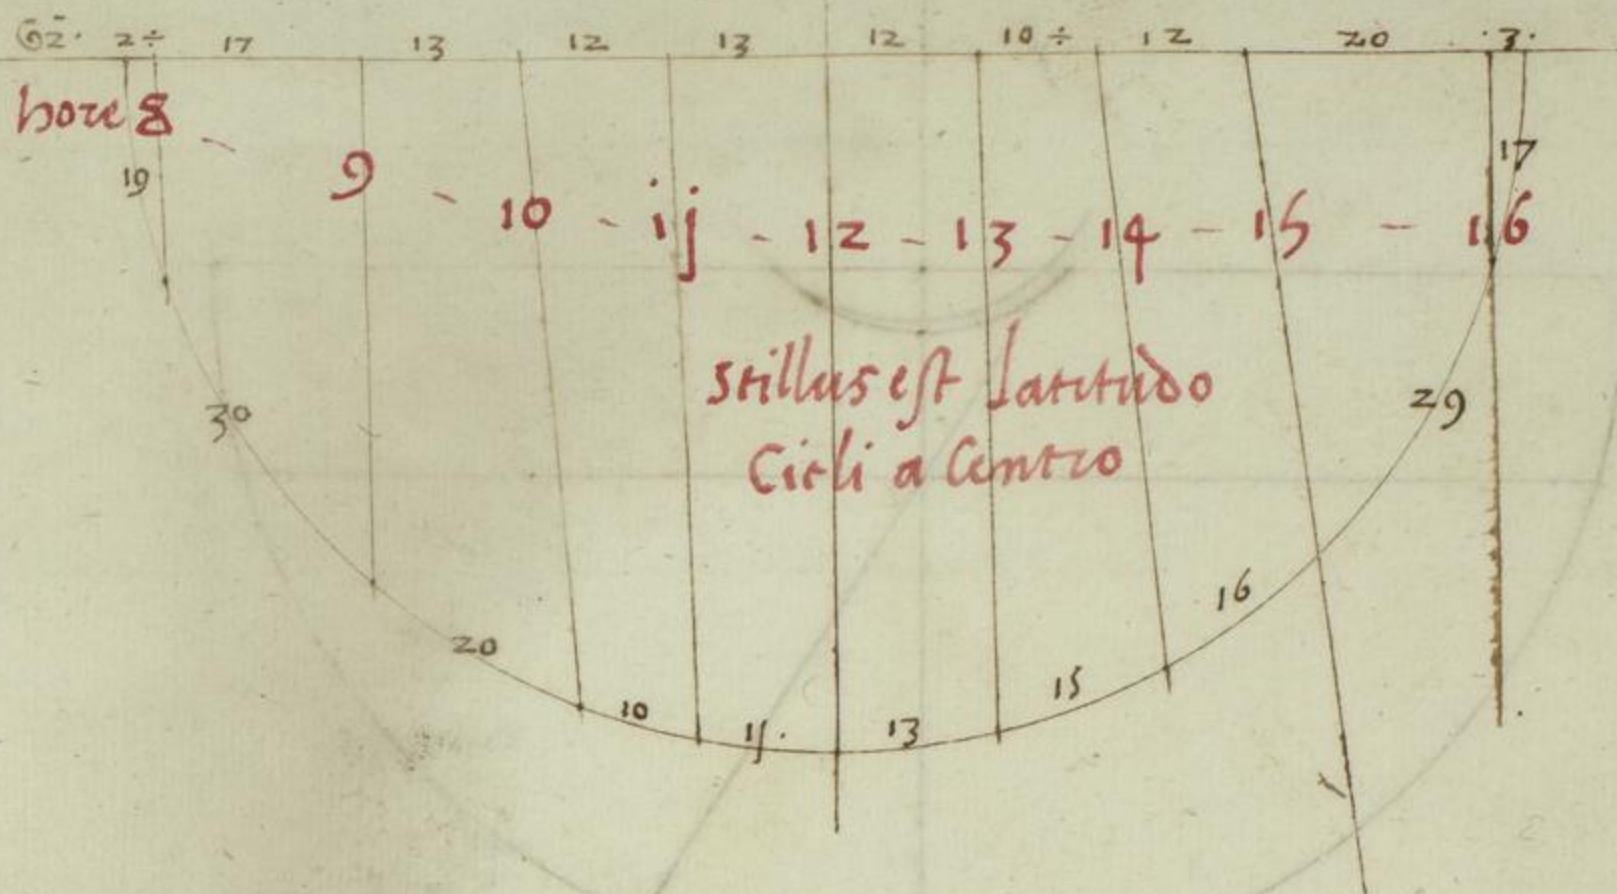 62. 2÷ 17 13 12 13 12 10÷ 12 20 .3.
hore 8 - 9 - 10 - ij - 12 - 13 - 14 - 15 - 16
19 17
stillus est latitudo
Cicli a Centro
30 29
20 16
10 15
ij. 13